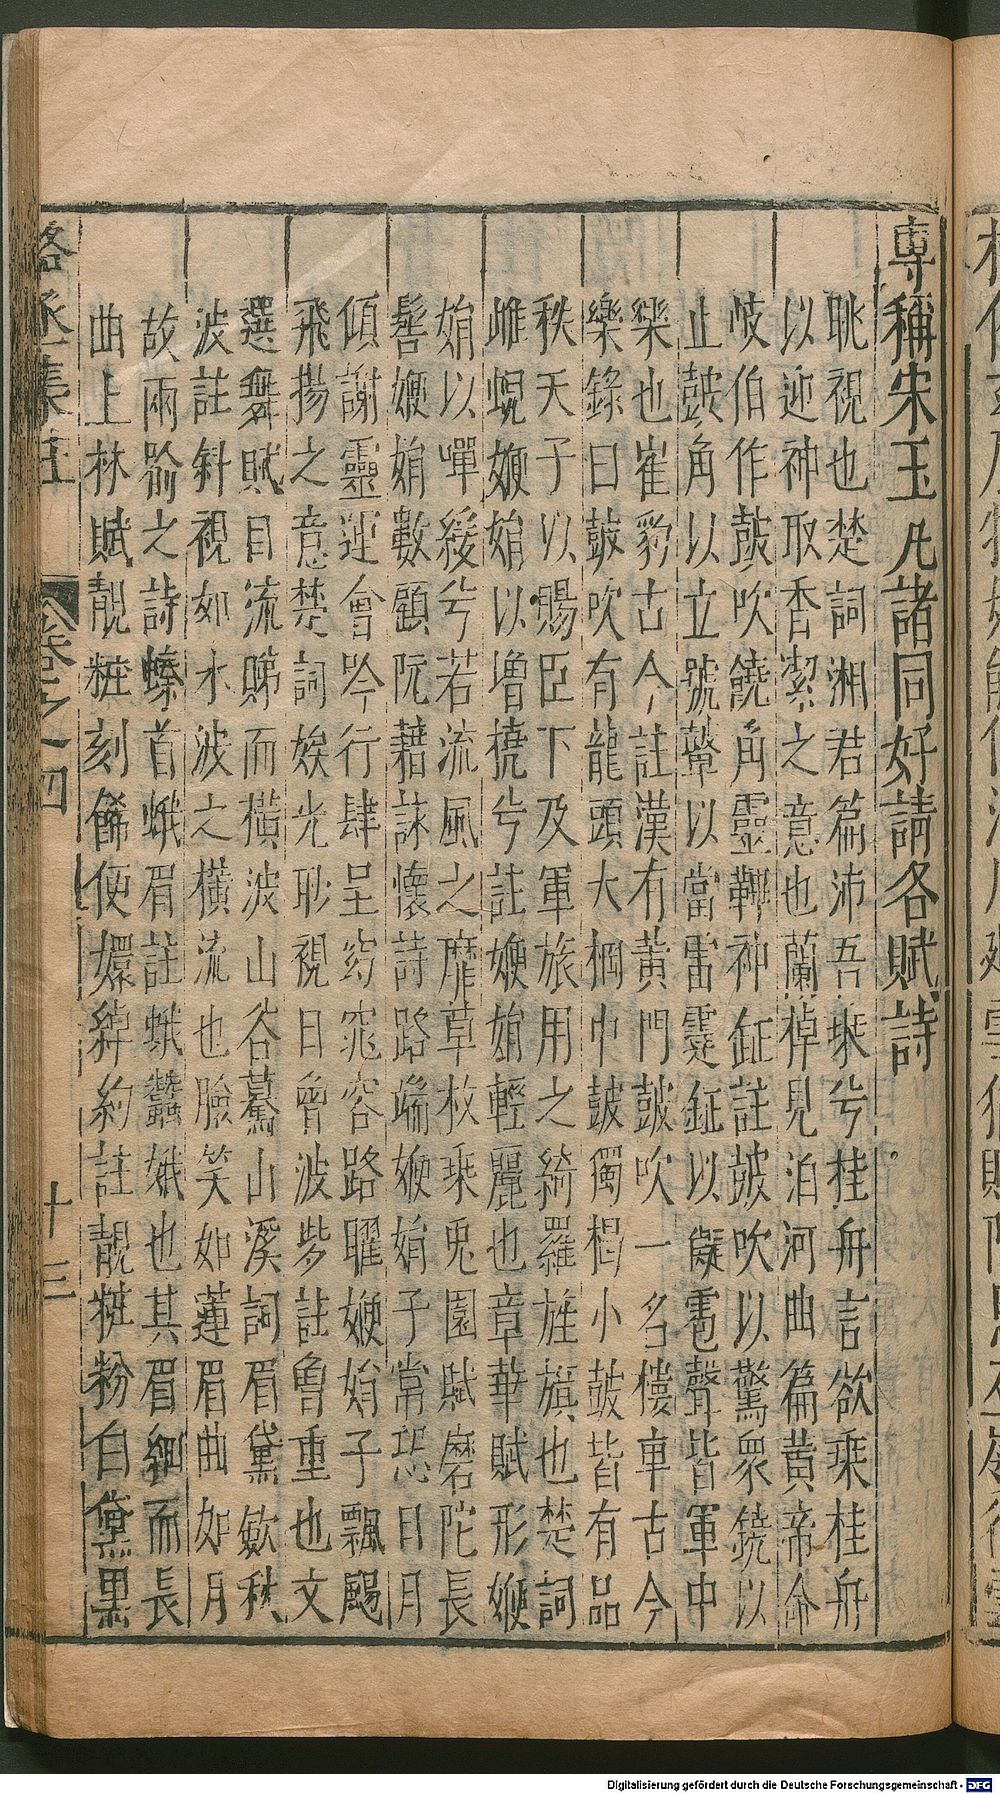 專稱宋玉凡諸同好請各賦詩
眺視也楚詞湘君篇沛吾乘兮桂舟言欲乘桂舟
以迎神取香潔之意也蘭棹見泊河曲篇黃帝命
岐伯作鼓吹鐃角靈鞞神鉦註鼓吹以驚衆鐃以
止鼓角以立號鞞以當雷霆鉦以擬雹聲皆軍中
樂也崔豹古今註漢有黃門鼓吹一名樓車古今
樂錄曰鼓吹有龍頭大棡中鼓獨楬小鼓皆有品
秩天子以賜臣下及軍旅用之綺羅旌旗也楚詞
雌蜺嬽娟以增撓兮註嬽娟輕麗也章華賦形嬽
娟以嘽緩兮若流風之靡草枚乘兎園賦磨陀長
髻嬽娟數顧阮藉詠懷詩路端嬽娟子常恐日月
傾謝靈運會吟行肆呈窈窕容路曜嬽娟子飄颺
飛揚之意楚詞娭光眇視目曾波些註魯重也文
選舞賦目流睇而橫波山谷驀山溪詞眉黛斂秋
波註斜視如水波之橫流也臉笑如蓮眉曲如月
故兩喻之詩螓首蛾眉註蛾蠶蛾也其眉細而長
曲上林賦靚糚刻餙便嬛綽約註靚糚粉白黛黑
卷之四
十三
Digitalisierung gefördert durch die Deutsche Forschungsgemeinschaft - DFG